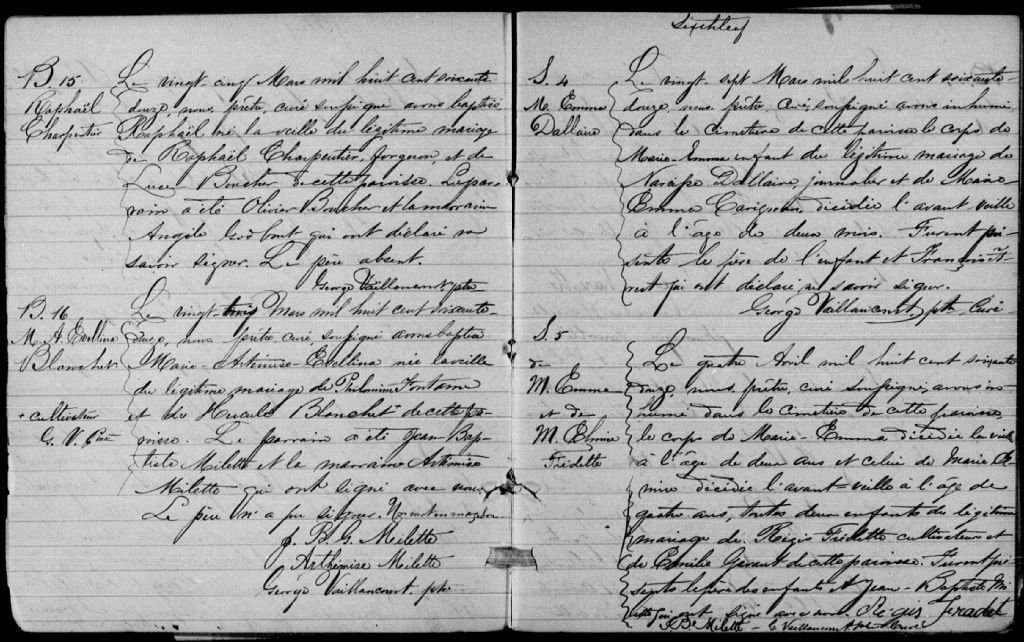 B 15
Raphaël
Charpentier
Le vingt-cinq Mars mil huit cent soixante
douze, nous, prêtre, curé soussigné avons baptisé
Raphaël né la veille du légitime mariage
de Raphaël Charpentier, forgeron et de
Lucie Boucher de cette paroisse. Le par-
rain a été Olivier Boucher et la marraine
Angèle Godbout qui ont déclaré ne
savoir signer. Le père absent.
George Vaillancourt ptre
B. 16
M. A. Evellina
Blanchet
+ cultivateur
G. V. Curé
Le vingt-trois Mars mil huit cent soixante-
douze, nous, Prêtre curé, soussigné avons baptisé
Marie-Artémise-Evellina née la veille
du légitime mariage de Philomène Fontaine
et de Hercule Blanchet+ de cette pa-
roisse. Le parrain a été Jean-Bap-
tiste Milette et la marraine Artémise
Milette qui ont signé avec nous.
Le père n'a pu signer. Un mot en marge bon
J. B. G. Milette
Arthémise Milette
George Vaillancourt. ptre
Sixième
S. 4
M. Emma
Dallaire
Le vingt-sept Mars mil huit cent soixante-
douze, nous, prêtre, curé, soussigné avons inhumé
dans le cimetière de cette paroisse le corps de
Marie-Emma enfant du légitime mariage de
Narcisse Dallaire, journalier et de Marie-
Emma Carignan, décédée l'avant-veille
à l'âge de deux mois. Furent pré-
sents le père de l'enfant et François
qui ont déclaré ne savoir signer.
George Vaillancourt, ptre Curé
S. 5
de
M. Emma
et de
M. Elmire
Frédette
Le quatre Avril mil huit cent soixante
douze, nous, prêtre, curé soussigné, avons in-
humé dans le cimetière de cette paroisse,
le corps de Marie-Emma décédée la veille
à l'âge de deux ans et celui de Marie El-
mire décédée l'avant-veille à l'âge de
quatre ans, toutes deux enfants du légitime
mariage de Régis Frédette cultivateur et
de Emilie Giraut de cette paroisse. Furent pré-
sents le père des enfants et Jean-Baptiste Mi-
lette qui ont signé avec nous. Régis Fradet
J. Bte Milette - G Vaillancourt ptre Curé